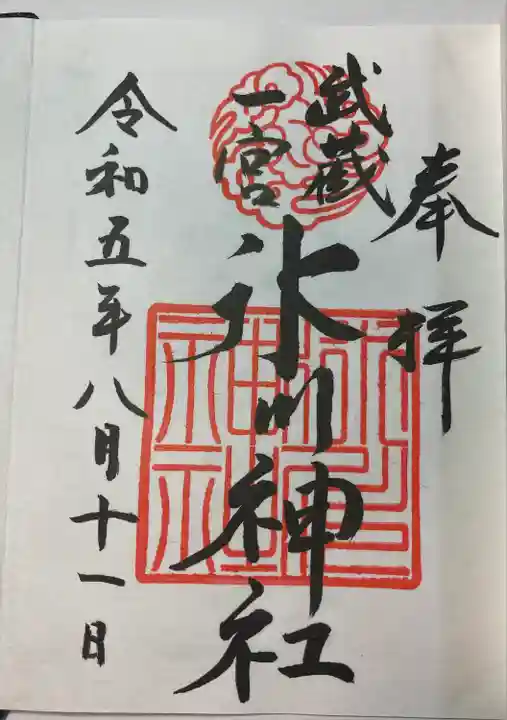 奉拝
武蔵
一宮
氷川神社
令和五年八月十一日
氷川
神社